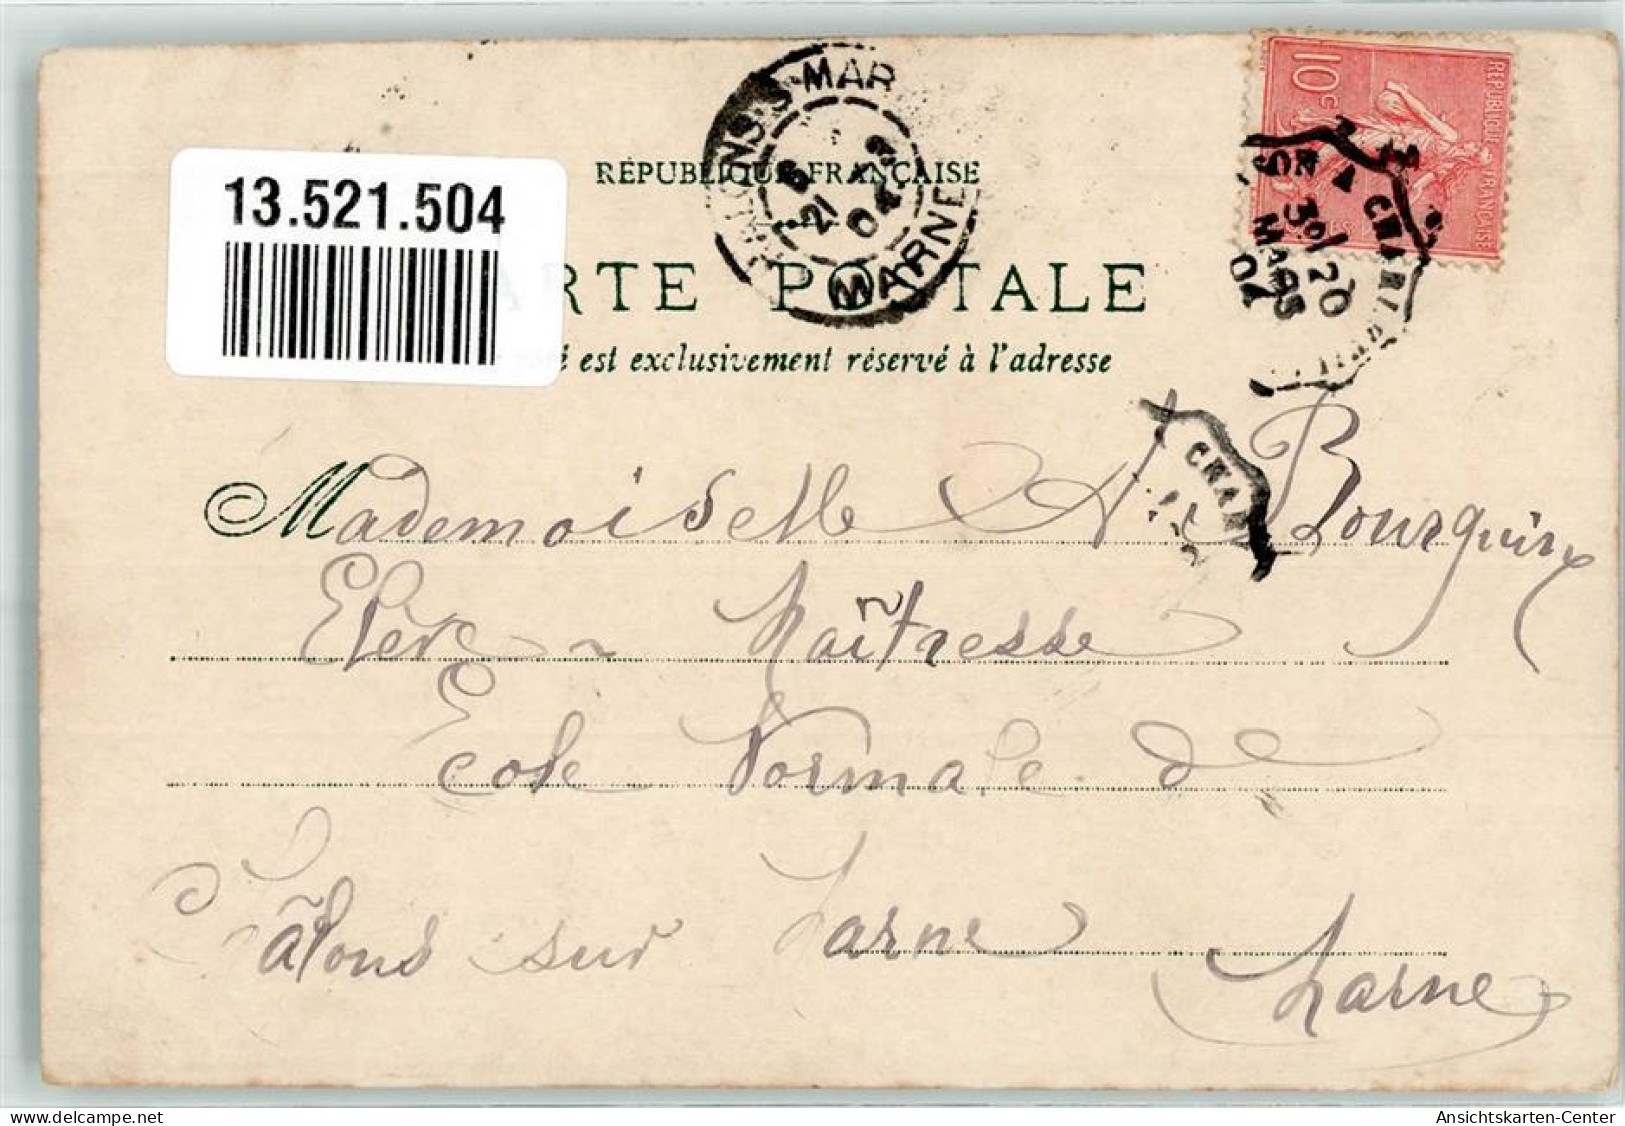 13.521.504
RÉPUBLIQUE FRANÇAISE
CARTE POSTALE
est exclusivement réservé à l'adresse
10c
REPUBLIQUE FRANÇAISE
S-MAR
21
04
MARNE
3º/20
MARS
04
CHAR
Mademoiselle A. Bourguin
Elève - Maîtresse
Ecole Normale de
Châlons sur Marne
Marne
delcampe.net
Ansichtskarten-Center